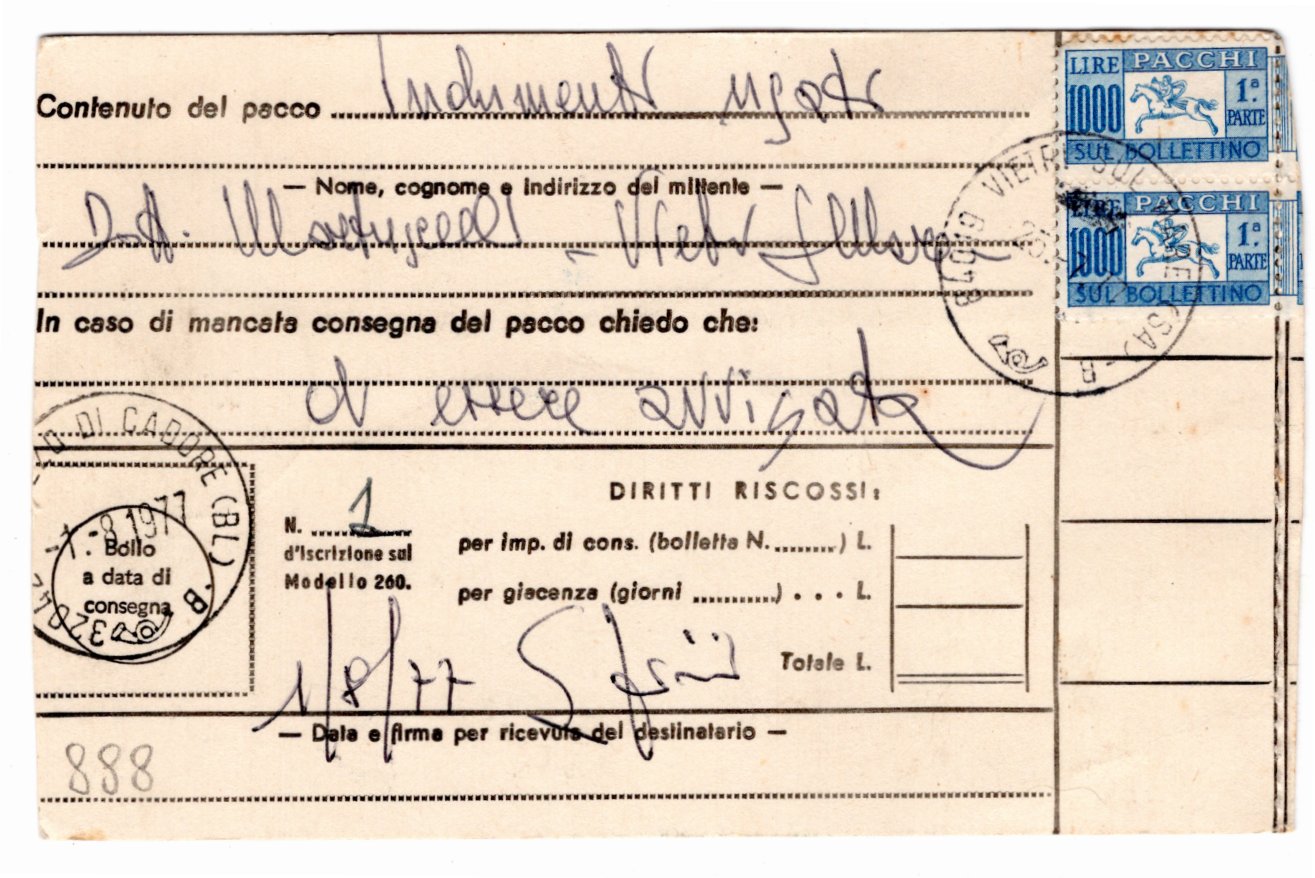 LIRE PACCHI
1000 1ª PARTE
SUL BOLLETTINO
LIRE PACCHI
1000 1ª PARTE
SUL BOLLETTINO
Contenuto del pacco Indumenti usati
— Nome, cognome e indirizzo del mittente —
Vietri sul Mare
84019 VIETRI SUL MARE (SA) - B
In caso di mancata consegna del pacco chiedo che:
di essere avvisata
DI CADORE (BL)
1.-8.1977
B
Bollo
a data di
consegna
DIRITTI RISCOSSI:
N. 1
d'iscrizione sul
Modello 260.
per imp. di cons. (bolletta N. ........) L.
per giacenza (giorni ...........) . . . L.
Totale L.
1/8/77
— Data e firma per ricevuta del destinatario —
888